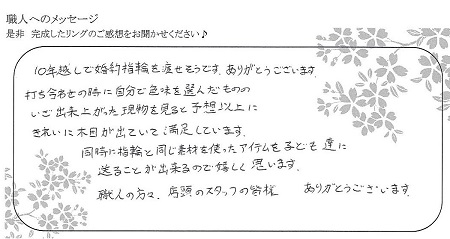 職人へのメッセージ
是非 完成したリングのご感想をお聞かせください♪
10年越しで婚約指輪を渡せそうです。ありがとうございます。
打ち合わせの時に自分で色味を選んだものの
いざ出来上がった現物を見ると予想以上に
きれいに木目が出ていて満足しています。
同時に指輪と同じ素材を使ったアイテムを子ども達に
送ることが出来るので嬉しく思います。
職人の方々、店頭のスタッフの皆様 ありがとうございます。